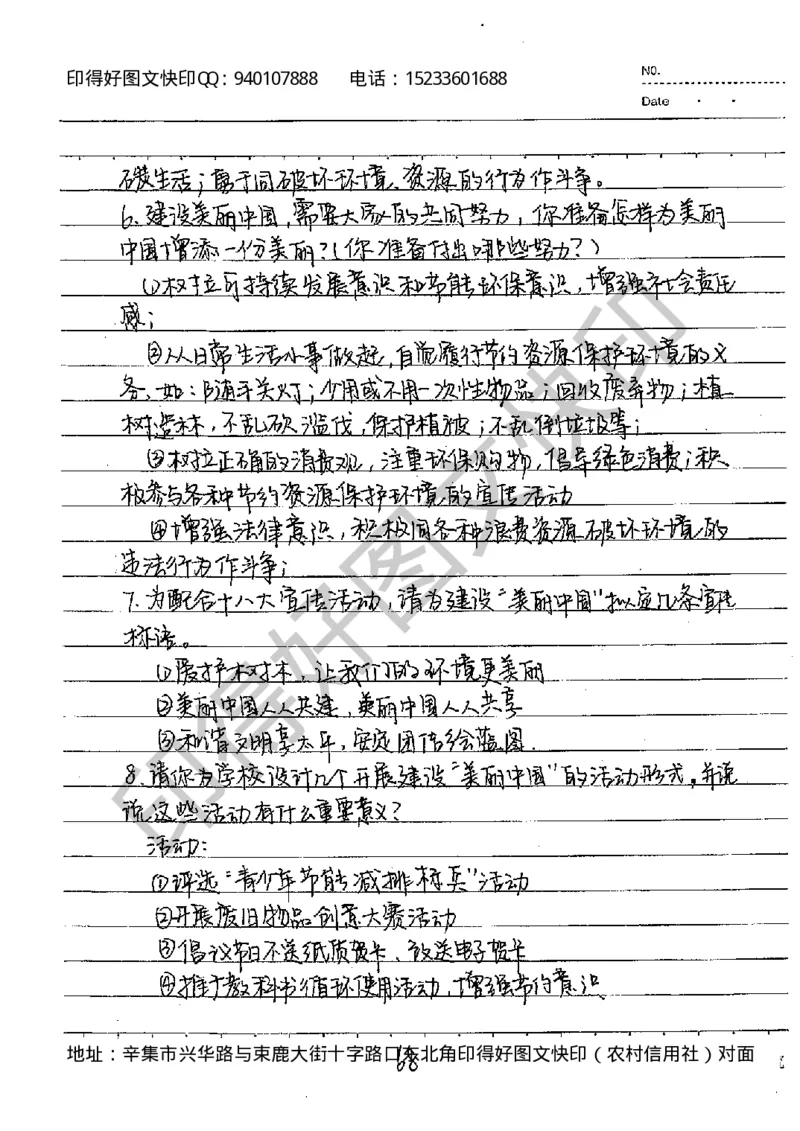 印得好图文快印QQ：940107888 电话：15233601688
No.
Date
碳生活；勇于同破坏环境、资源的行为作斗争。
6、建设美丽中国，需要大家的共同努力，你准备怎样为美丽
中国增添一份美丽？（你准备付出哪些努力？）
①树立可持续发展意识和节能环保意识，增强社会责任
感；
②从日常生活小事做起，自觉履行节约资源保护环境的义
务、如：随手关灯；少用或不用一次性物品；回收废弃物；植
树造林，不乱砍滥伐，保护植被；不乱倒垃圾等；
③树立正确的消费观，注重环保购物，倡导绿色消费；积
极参与各种节约资源保护环境的宣传活动
④增强法律意识，积极同各种浪费资源破坏环境的
违法行为作斗争；
7、为配合十八大宣传活动，请为建设“美丽中国”拟定几条宣传
标语。
①爱护树木，让我们的环境更美丽
②美丽中国人人共建，美丽中国人人共享
③和谐文明享太平，安定团结绘蓝图.
8、请你为学校设计几个开展建设“美丽中国”的活动形式，并说
说这些活动有什么重要意义？
活动：
①评选“青少年节能减排标兵”活动
②开展废旧物品创意大赛活动
③倡议节日不送纸质贺卡、改送电子贺卡
④推广教科书循环使用活动，增强节约意识
地址：辛集市兴华路与束鹿大街十字路口东北角印得好图文快印（农村信用社）对面
68
印得好图文快印